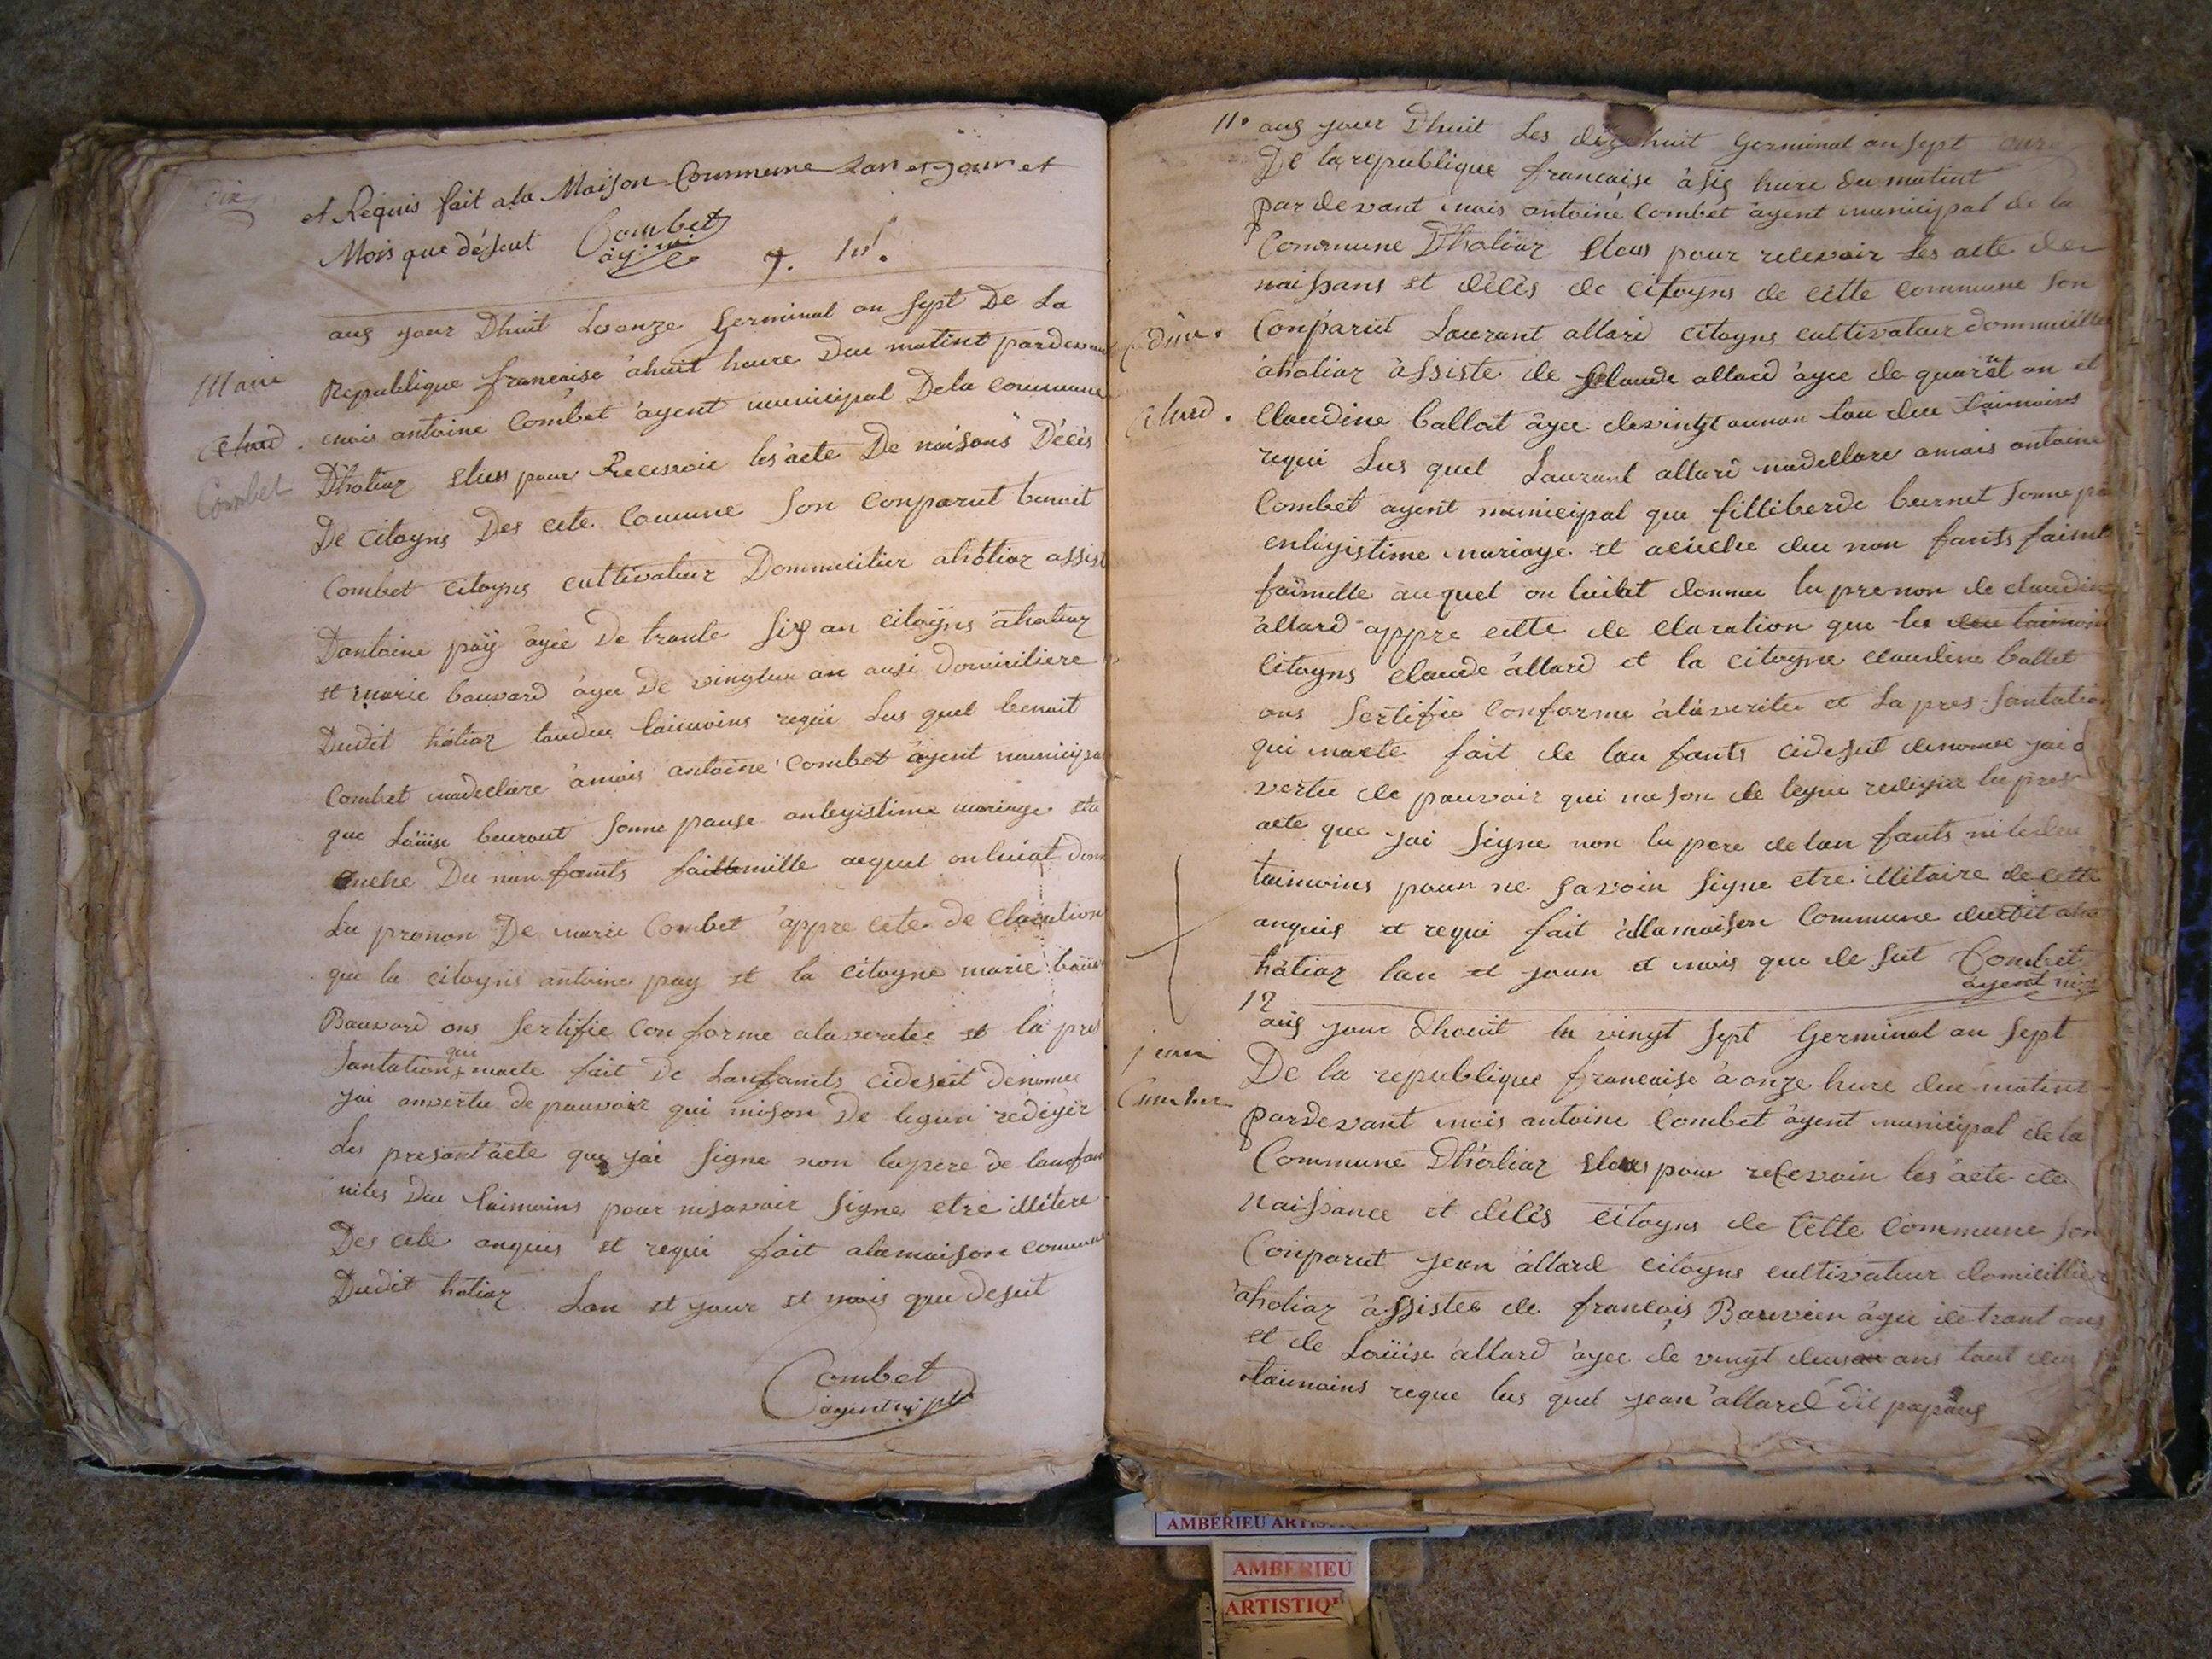 dix
et Requis fait ala Maison Commune Lan et jour et
Mois que désut Combet
9. 10.
auj jour Dhuit Leonze germinal an sept De La
Marie
Republique francaise àhuit heure Du matint pardevan
allard
mois antoine Combet àyent municipal Dela commune
Combet
Dhotiaz elus pour Recevoir les acte De naisons Décés
De citoyns Des cete Comune Son Conparut benoit
Combet citoyns cultivateur Dommicilier ahotiaz assist
Dantoine pay àyée De trante six an citoyns àhotiaz
et marie bouvard àyee De vingtun an ausi Domiciliere
Dudit hotiaz toudeu taimoins requi Lus quel benoit
Combet madeclare àmois antoine Combet àyent municipal
que Loüise bouvout Sonne pouse anleyistime mariage eta
cuche Du nun fants faittemille auquel onluiat donn
Lu pronon De marie Combet àppre cete de Claration
que la citoyns antoine pay et la citoyne marie boüv
Bouvard ons Sertifie Conforme alaveritee et la pres
Santation qui macte fait De Lanfants cidesut dénomee
jai anvertu de pouvoir qui mison De legun redigér
Les presant àcte que jai Signe non lupere de lanfan
niles Deu taimoins pour nisavoir Signe etre illitere
Des cete anquis et requi fait alamaison commune
Dudit hotiaz Lan et jour et mois que desut
Combet
àgent mpl
11. auj jour Dhuit Les dizehuit Germinal an sept
De la republique francaise àsix hure du matint
par devant mois antoine Combet àyent municipal de la
Commune Dhotiaz elus pour recevoir Les acte de
naissans et décès de citoyns de cette commune Son
dine. Conparut Laurant allard citoyns cultivateur dommicillie
àhotiaz àssiste de Claude allard àyee de quarant an et
allard. Claudine ballat àyee devingt an tou deu taimoins
requi Lus quel Laurant allard madellare amois antoine
Combet ayent municipal que filliberde burnet Sonne po
enligistime mariage et acuche deu non fants faimt
faimelle àuquel on luiat donnee lu prenon de claudine
àllard appre cette de claration que les deu taimoin
Citoyns claude àllard et la citoyne claudine ballet
ons Sertifie Conforme àlaveritee et La pres Santation
qui macte fait de lan fants cidesut denomee jai a
vertu de pouvoir qui me son de legué redigier lu pres
acte que jai Signe non lu pere delan fants niledeu
taimoins poun ne Savoin Signe etre illitaire de cette
anquis et requi fait àllamaison Commune dudit aho
hàtiaz lan et joun et mois que de sut Combet
ayent
12
auj jour dhouit lu vingt sept Germinal an sept
jean
De la republique francaise àonze hure deu matint
pardevant mois antoine Combet àyent municipal dela
Commune Dhotiaz elus pour recevoin les àcte de
naissance et décès citoyns de Cette Commune son
Conparut jean àllard citoyns cultivateur domicillie
àhotiaz àssistee de francois Bouvien àyee de trant ans
et de Loüise àllard àyee de vingt deus ans tout deu
taimoins reque lus quel jean àllard dit papang
AMBERIEU
AMBERIEU